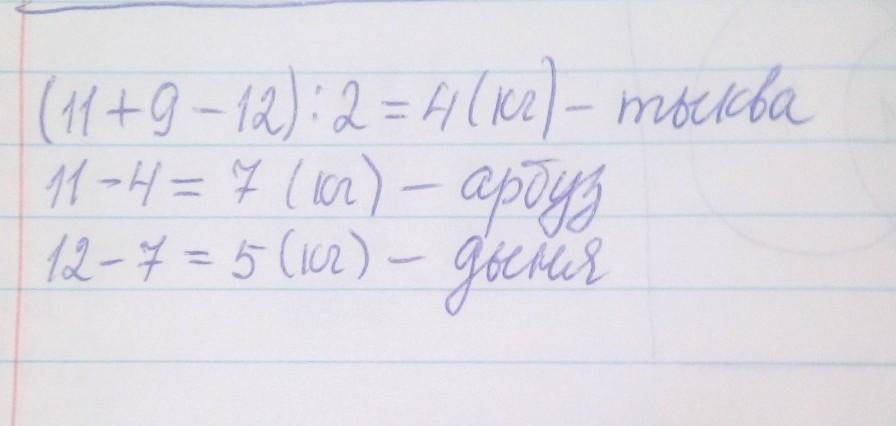 (11+9-12):2=4(кг)- тыква
11-4= 7 (кг) - арбуз
12-7 = 5 (кг) - дыня